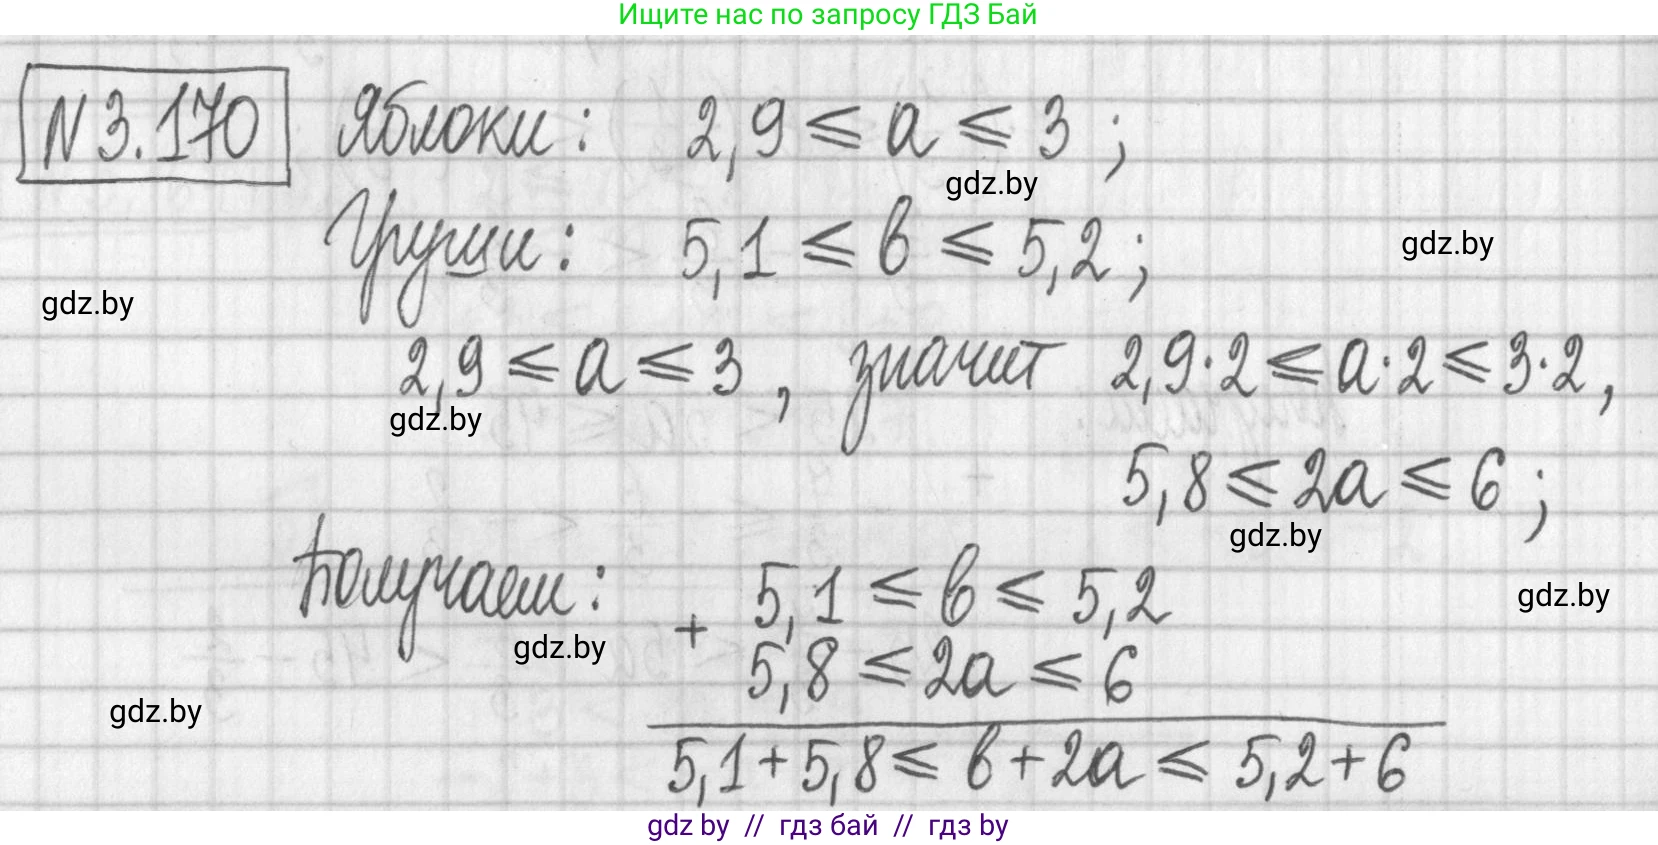 Ищите нас по запросу ГДЗ Бай
N 3.170 Яблоки: 2,9 ⩽ a ⩽ 3 ;
gdz.by
Груши: 5,1 ⩽ b ⩽ 5,2 ;
gdz.by
gdz.by
2,9 ⩽ a ⩽ 3 , значит 2,9·2 ⩽ a·2 ⩽ 3·2 ,
gdz.by
5,8 ⩽ 2a ⩽ 6 ;
gdz.by
Получаем: + 5,1 ⩽ b ⩽ 5,2
gdz.by
gdz.by
5,8 ⩽ 2a ⩽ 6
gdz.by
5,1+5,8 ⩽ b+2a ⩽ 5,2+6
gdz by // гдз бай // гдз by